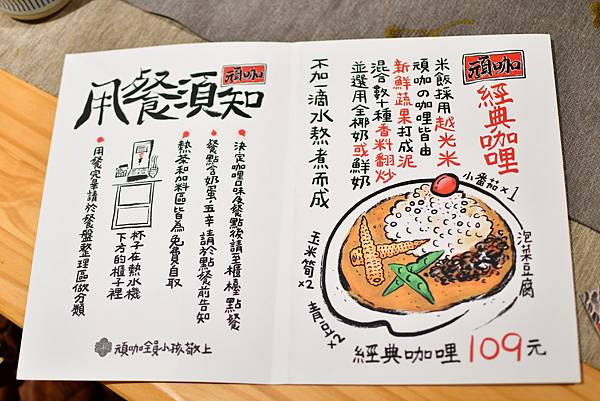 頑咖
用餐須知
決定咖哩口味及餐點後請至櫃檯點餐
餐點含奶蛋五辛請於點餐前告知
熱茶和加料區皆為免費自取
杯子在熱水機
下方的櫃子裡
用餐完畢請於餐盤整理區做分類
頑咖全員小孩敬上
頑咖
經典咖哩
米飯採用越光米
頑咖の咖哩皆由
新鮮蔬果打成泥
混合數十種香料翻炒
並選用全椰奶或鮮奶
不加一滴水熬煮而成
小番茄×1
泡菜豆腐
玉米筍×2
青豆×2
經典咖哩 109元